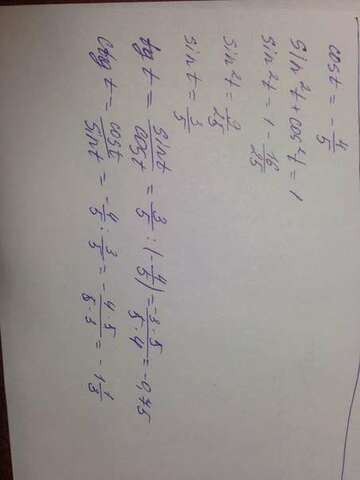 cos t = - 4/5
sin²t + cos²t = 1
sin²t = 1 - 16/25
sin²t = 9/25
sin t = 3/5
tg t = sin t/cos t = 3/5 : (- 4/5) = - 3·5/5·4 = -0,75
ctg t = cos t/sin t = - 4/5 : 3/5 = - 4·5/5·3 = - 1 1/3